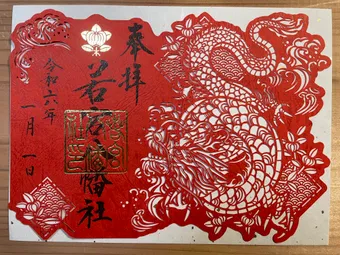 奉拝
若宮八幡社
令和六年
一月一日